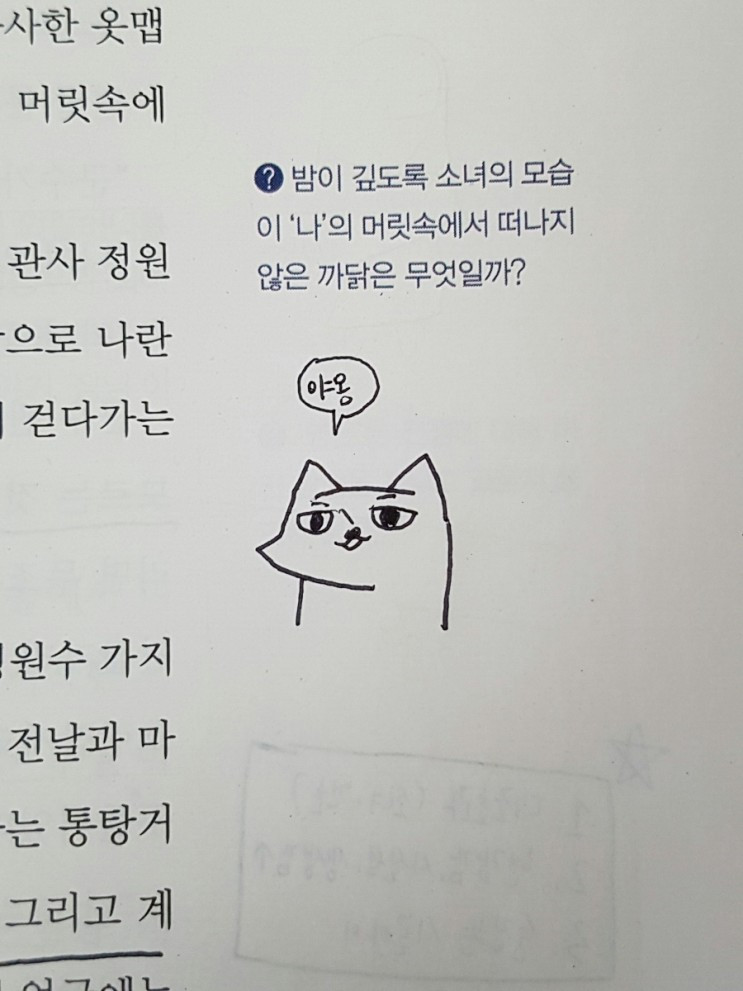 사한 옷맵
머릿속에
? 밤이 깊도록 소녀의 모습
이 ‘나’의 머릿속에서 떠나지
관사 정원
않은 까닭은 무엇일까?
으로 나란
야옹
걷다가는
원수 가지
전날과 마
는 통탕거
그리고 계